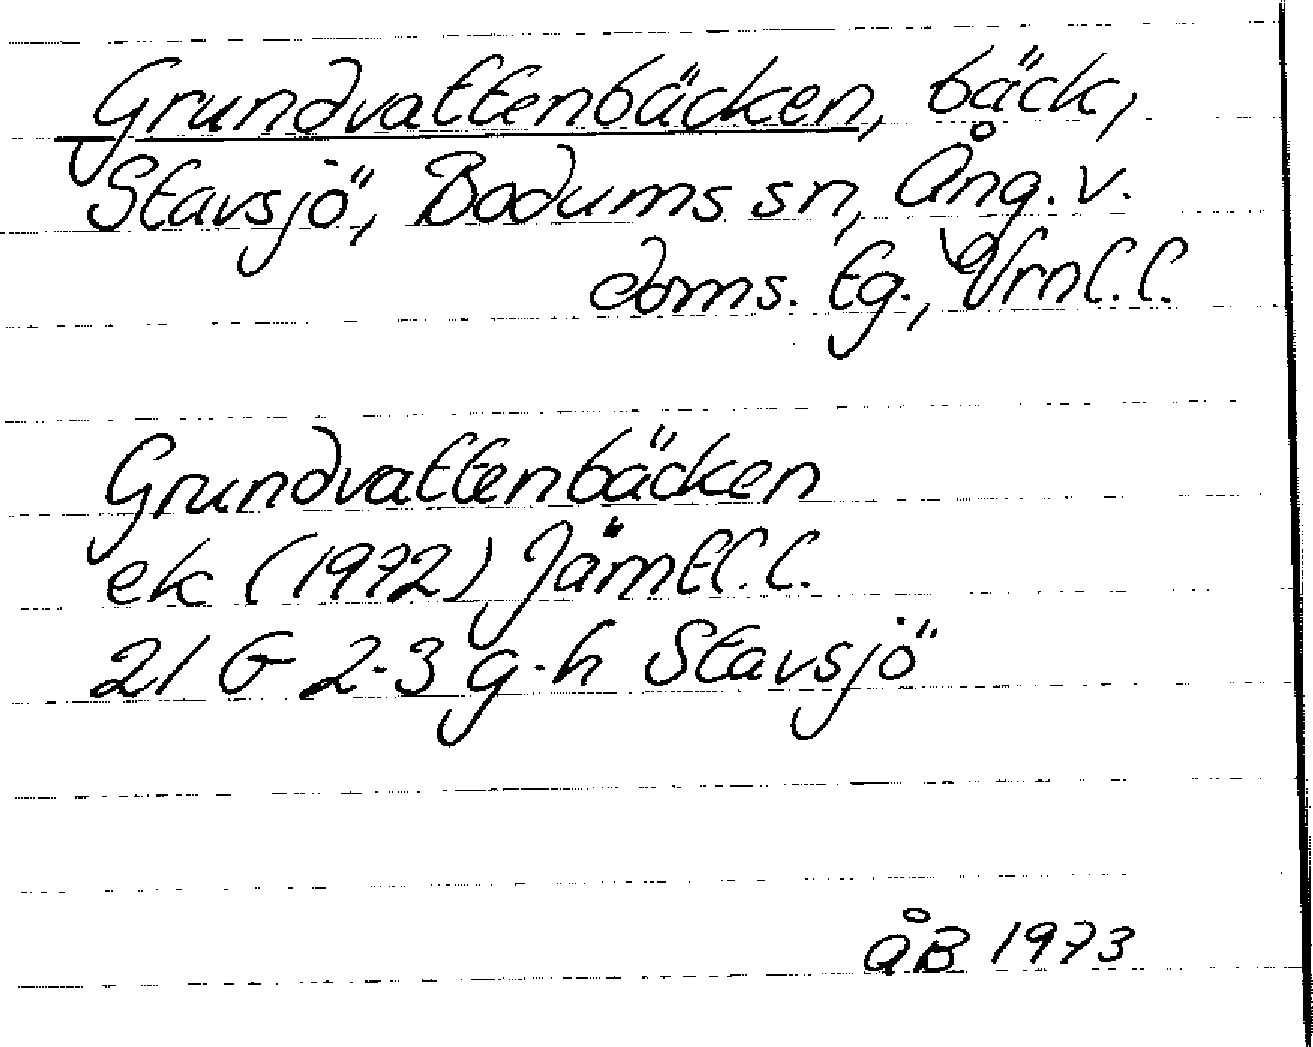 Grundvattenbäcken, bäck,
Stavsjö, Bodums sn, Ång. v.
doms. tg., Vrnl.l.
Grundvattenbäcken
ek (1972) Jämtl.l.
21 G 2-3 g-h Stavsjö
åB 1973